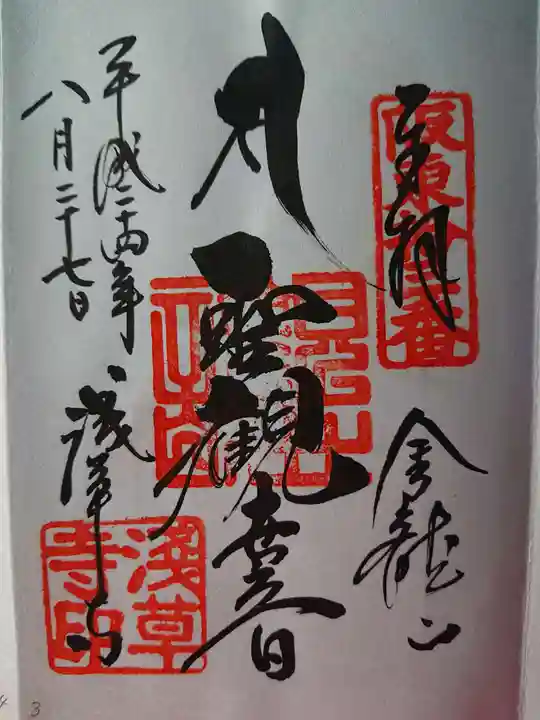 奉拝
坂東拾三番
金龍山
聖観世音
平成二十四年
八月二十七日
浅草寺
浅草寺印
3